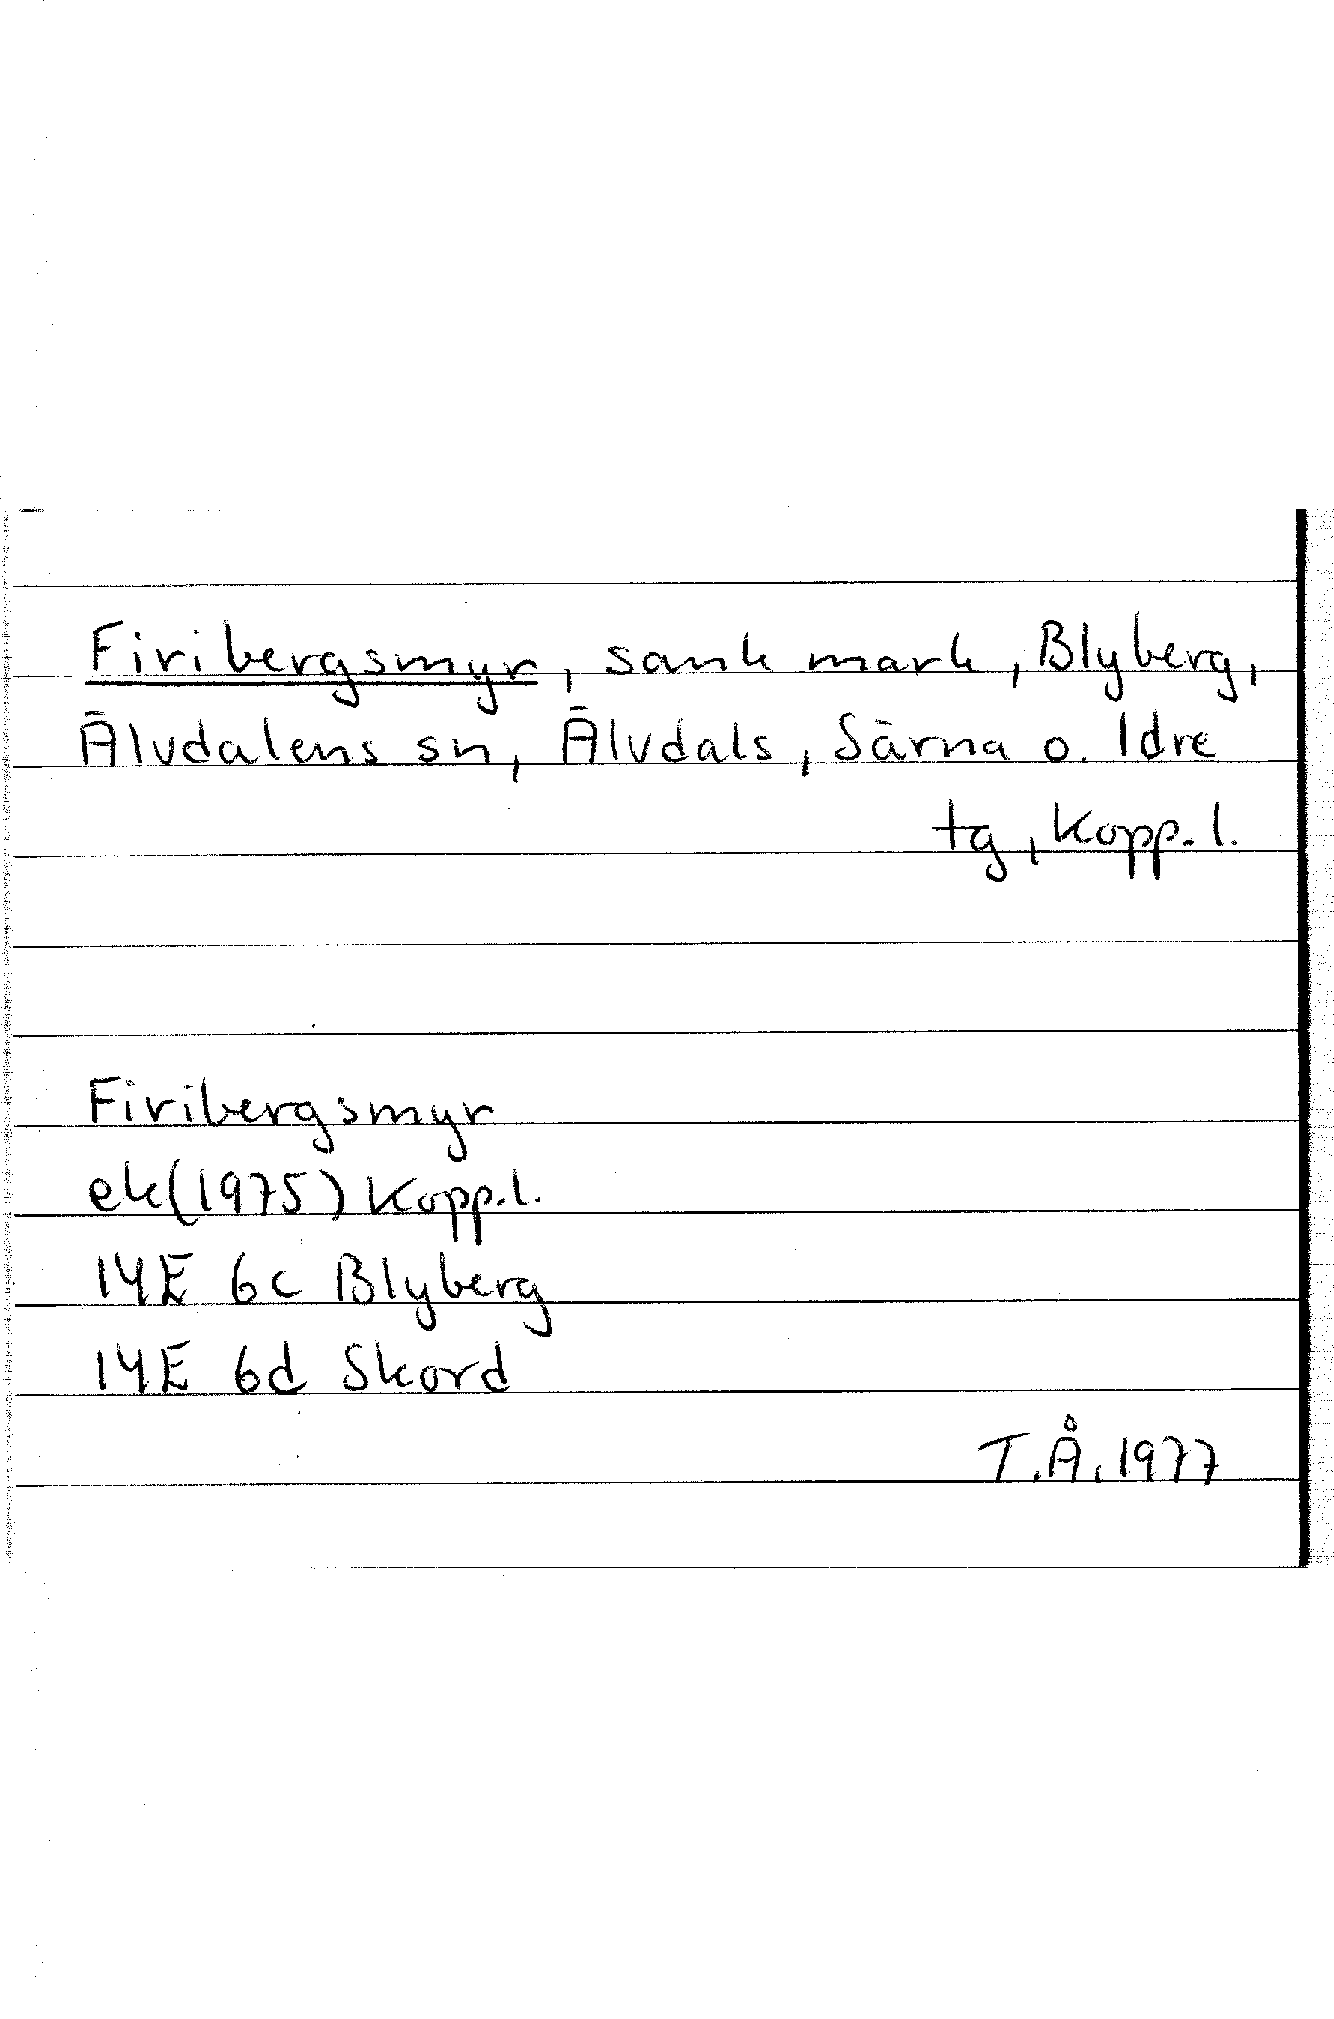 Firibergsmyr, sank mark, Blyberg,
Älvdalens sn, Älvdals, Särna o. Idre
tg, Kopp. l.
Firibergsmyr
ek (1975) Kopp. l.
14E 6c Blyberg
14E 6d Skord
T.Å. 1977